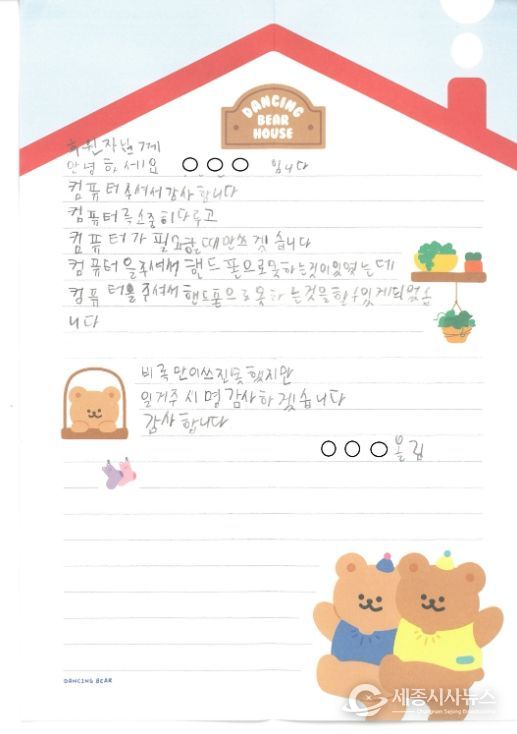 DANCING
BEAR
HOUSE
후원자님께
안녕하세요 ○○○ 입니다
컴퓨터 주셔서 감사합니다
컴퓨터를 소중히 다루고
컴퓨터가 필요할 때만 쓰겟습니다
컴퓨터을 주셔서 핸드폰으로 못하는 것이 있었는데
컴퓨터를 주셔서 핸드폰으로 못하는 것을 할 수 있게 되었습
니다
비록 많이 쓰진 못했지만
읽어주시면 감사하겟습니다
감사합니다
○○○ 올림
DANCING BEAR
세종시사뉴스